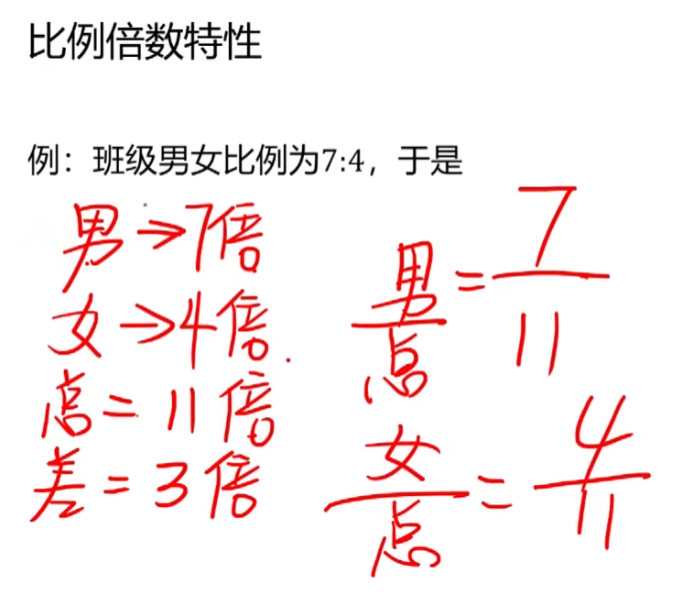 比例倍数特性
例：班级男女比例为7:4，于是
男→7倍
女→4倍
总=11倍
差=3倍
男/总=7/11
女/总=4/11